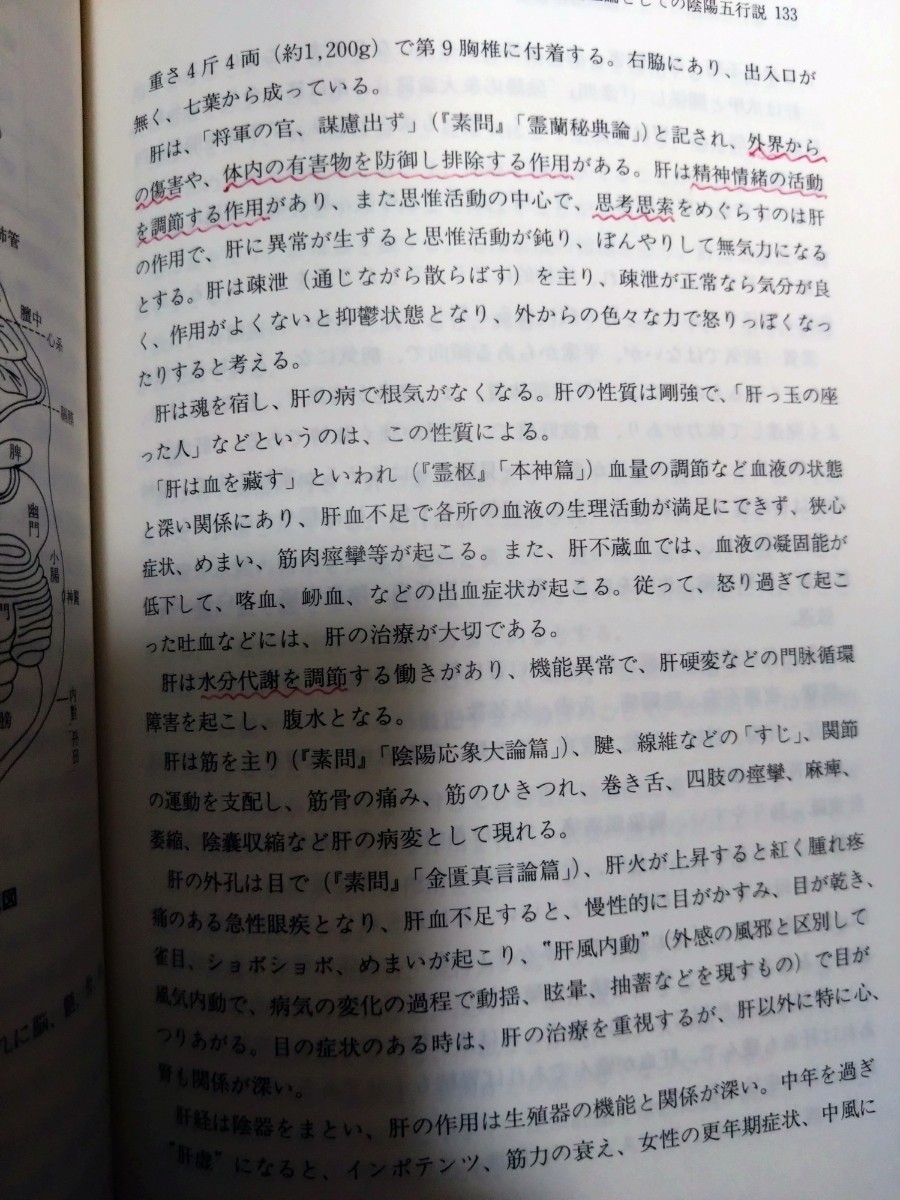 としての陰陽五行説 133
重さ4斤4両（約1,200g）で第9胸椎に付着する。右脇にあり、出入口が
無く、七葉から成っている。
肝は、「将軍の官、謀慮出ず」（『素問』「霊蘭秘典論」）と記され、外界から
の傷害や、体内の有害物を防御し排除する作用がある。肝は精神情緒の活動
を調節する作用があり、また思惟活動の中心で、思考思索をめぐらすのは肝
の作用で、肝に異常が生ずると思惟活動が鈍り、ぼんやりして無気力になる
とする。肝は疎泄（通じながら散らばす）を主り、疎泄が正常なら気分が良
く、作用がよくないと抑鬱状態となり、外からの色々な力で怒りっぽくなっ
たりすると考える。
肝は魂を宿し、肝の病で根気がなくなる。肝の性質は剛強で、「肝っ玉の座
った人」などというのは、この性質による。
「肝は血を蔵す」といわれ（『霊枢』「本神篇」）血量の調節など血液の状態
と深い関係にあり、肝血不足で各所の血液の生理活動が満足にできず、狭心
症状、めまい、筋肉痙攣等が起こる。また、肝不蔵血では、血液の凝固能が
低下して、喀血、衂血、などの出血症状が起こる。従って、怒り過ぎて起こ
った吐血などには、肝の治療が大切である。
肝は水分代謝を調節する働きがあり、機能異常で、肝硬変などの門脉循環
障害を起こし、腹水となる。
肝は筋を主り（『素問』「陰陽応象大論篇」）、腱、線維などの「すじ」、関節
の運動を支配し、筋骨の痛み、筋のひきつれ、巻き舌、四肢の痙攣、麻痺、
萎縮、陰嚢収縮など肝の病変として現れる。
肝の外孔は目で（『素問』「金匱真言論篇」）、肝火が上昇すると紅く腫れ疼
痛のある急性眼疾となり、肝血不足すると、慢性的に目がかすみ、目が乾き、
雀目、ショボショボ、めまいが起こり、"肝風内動"（外感の風邪と区別して
風気内動で、病気の変化の過程で動揺、眩暈、抽蓄などを現すもの）で目が
つりあがる。目の症状のある時は、肝の治療を重視するが、肝以外に特に心、
腎も関係が深い。
肝経は陰器をまとい、肝の作用は生殖器の機能と関係が深い。中年を過ぎ
"肝虚"になると、インポテンツ、筋力の衰え、女性の更年期症状、中風に
肺管
膻中
心系
脾
幽門
小腸
門
膀
図